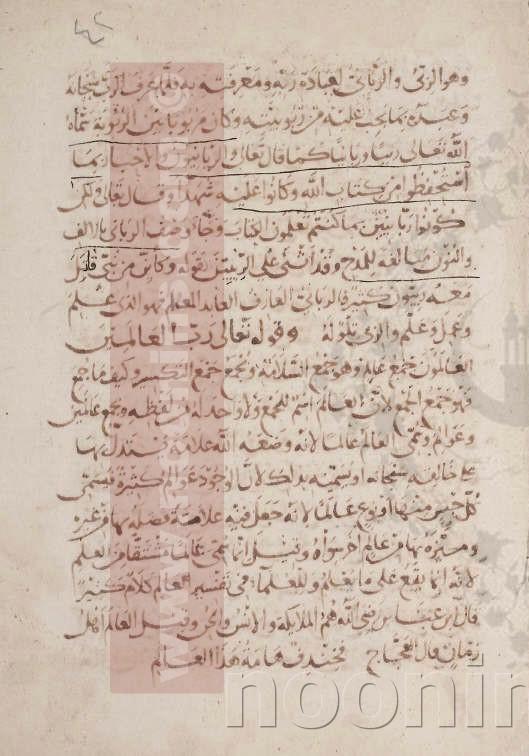 وهو الربي والرباني لعبادة ربه ومعرفته به فلما عرف الرب سبحانه
وعبده بما يجب عليه من ربوبيته وكان مربوبا بين الربوبية سماه
الله تعالى ربيا وربانيا كما قال تعالى والربانيون والاحبار بما
استحفظوا من كتاب الله وكانوا عليه شهدا وقال تعالى ولكن
كونوا ربانيين بما كنتم تعلمون الكتاب وصف الرباني بالالف
والنون مبالغة للمدح وقد اثنى على الربيين بقوله وكاين من نبي قاتل
معه ربيون كثير فالرباني العارف العابد المعلم فهو الذي علم
وعمل وعلم والربي يتلوله وقوله تعالى رب العالمين
العالمون جمع عالم وهو جمع السلامة ويجمع جمع التكسير وكيف ما جمع
فهو جمع الجمع لان العالم اسم للجمع ولا واحد له من لفظه ويجمع عالمين
وعوالم وسمي العالم عالما لانه وضعه الله علامة يستدل بها
على خالقه سبحانه وتسميته بذلك لان الوجود عوالم كثيرة فيسمى
كل جنس منها او نوع عالما لانه جعل فيه علامة فصله بها من غيره
وميزه بها من عالم اخر سواه وقيل انما سمي عالما مشتقا من العلم
لانه انما يقع على ما يعلم وللعلماء في تفسير العالم كلام كثير
قال ابن عباس رضي الله هم الملايكة والانس والجن وقيل العالم اهل
زمان قال العجاج فخندف هامة هذا العالم
noonin